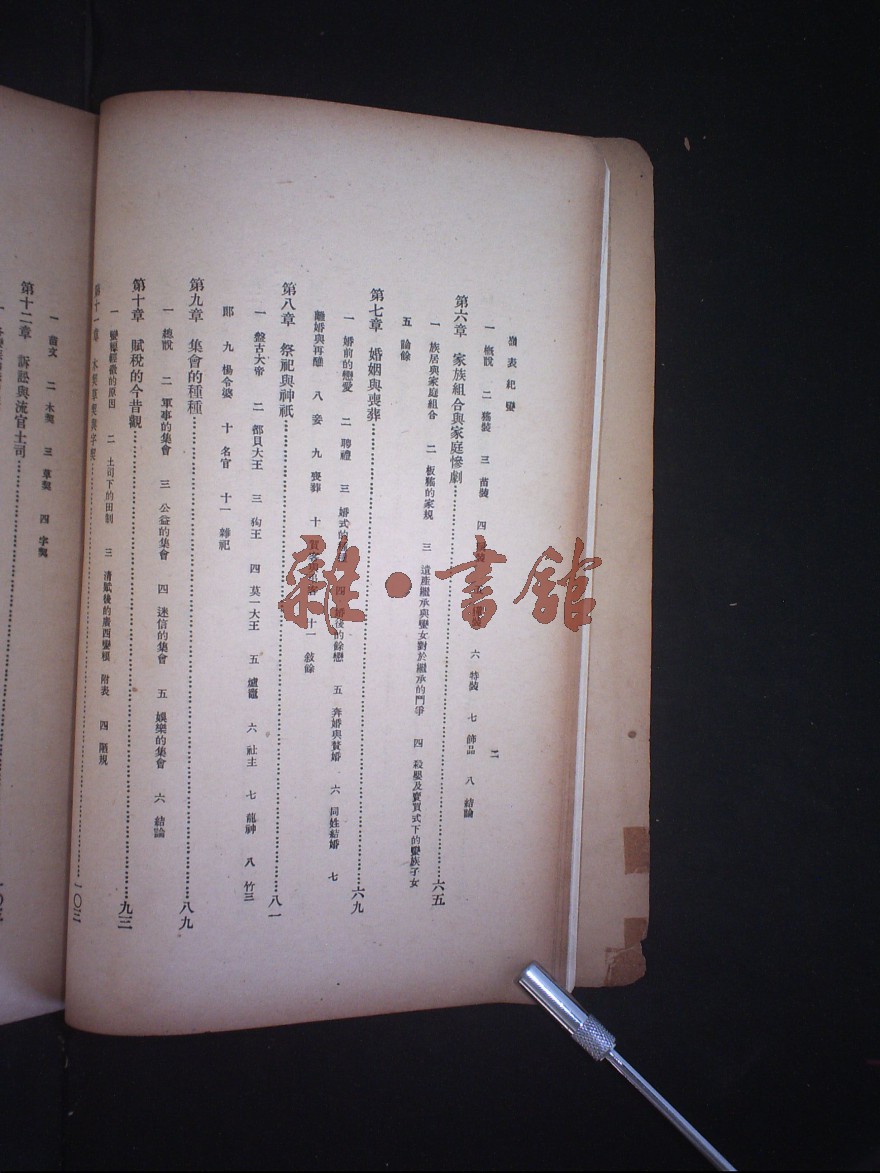 嶺表紀蠻
二
一 概說 二 猺裝 三 苗裝 四 六 特裝 七 飾品 八 結論
第六章 家族組合與家庭慘劇……六五
一 族居與家庭組合 二 板猺的家規 三 遺產繼承與蠻女對於繼承的鬥爭 四 殺嬰及賣買式下的蠻族子女
五 論餘
第七章 婚姻與喪葬……六九
一 婚前的戀愛 二 聘禮 三 婚式的 四 婚後的餘戀 五 奔婚與贅婚 六 同姓結婚 七
離婚與再醮 八 妾 九 喪葬 十 十一 敍餘
第八章 祭祀與神祇……八一
一 盤古大帝 二 都貝大王 三 狗王 四 莫一大王 五 爐竈 六 社主 七 龍神 八 竹三
郎 九 楊令婆 十 名官 十一 雜祀
第九章 集會的種種……八九
一 總說 二 軍事的集會 三 公益的集會 四 迷信的集會 五 娛樂的集會 六 結論
第十章 賦稅的今昔觀……九三
一 蠻糧經徵的原因 二 土司下的田制 三 清賦後的廣西蠻糧 附表 四 陋規
第十一章 木契草契與字契……一〇三
二 木契 三 草契 四 字契
第十二章 訴訟與流官土司……一〇
雜·書館